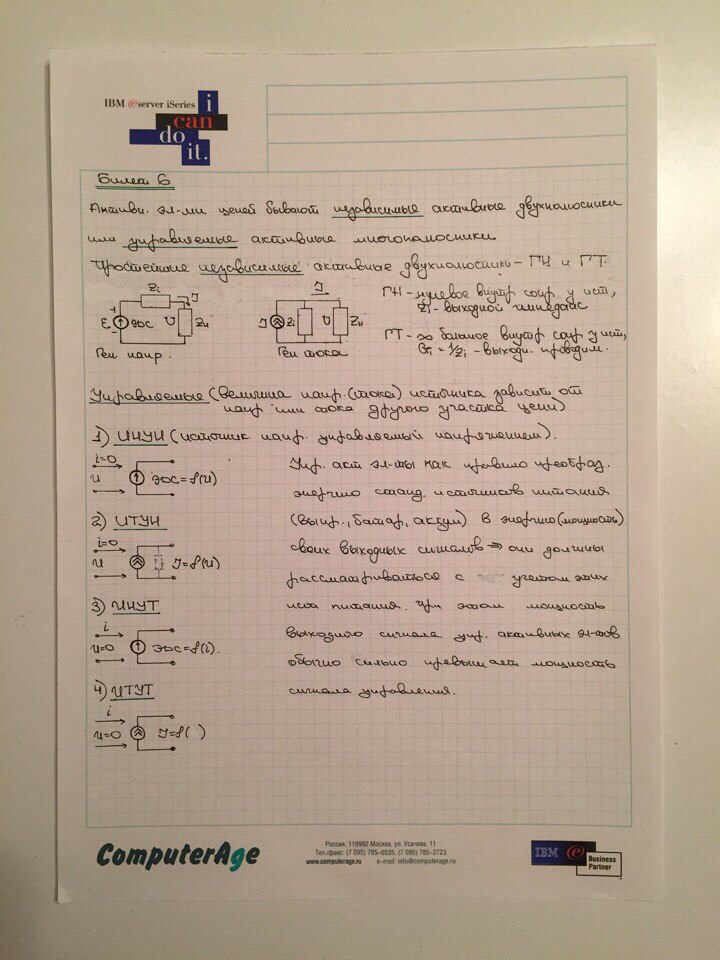 IBM e server iSeries
i
can
do
it.
Билет 6
Активн. эл-ми цепей бывают независимые активные двухполюсники
или управляемые активные многополюсники.
Простейшие независимые активные двухполюсники - ГН и ГТ.
Zi
J
+
E
ЭДС
U
Zн
-
Ген напр.
J
J
Zi
U
Zн
Ген тока
ГН - нулевое внутр сопр. у ист,
Zi - выходной импеданс
ГТ - ∞ большое внутр сопр у ист,
Gi = 1/Zi - выходн. проводим.
Управляемые (величина напр. (тока) источника зависит от
напр или тока другого участка цепи)
1) ИНУН (источник напр. управляемый напряжением).
i=0
u
ЭДС = f(U)
2) ИТУН
i=0
u
J=f(U)
3) ИНУТ
i
u=0
ЭДС=f(i).
4) ИТУТ
i
u=0
J=f( )
Упр. акт эл-ты как правило преобраз.
энергию станд. источников питания
(выпр., батар, аккум) в энергию (мощность)
своих выходных сигналов ⇒ они должны
рассматриваться с учетом этих
ист питания. При этом мощность
выходного сигнала упр. активных эл-тов
обычно сильно превышает мощность
сигнала управления.
ComputerAge
Россия, 119992 Москва, ул. Усачева, 11
Тел./факс: (7 095) 785-0535, (7 095) 785-2723
www.computerage.ru e-mail: info@computerage.ru
IBM e
Business
Partner